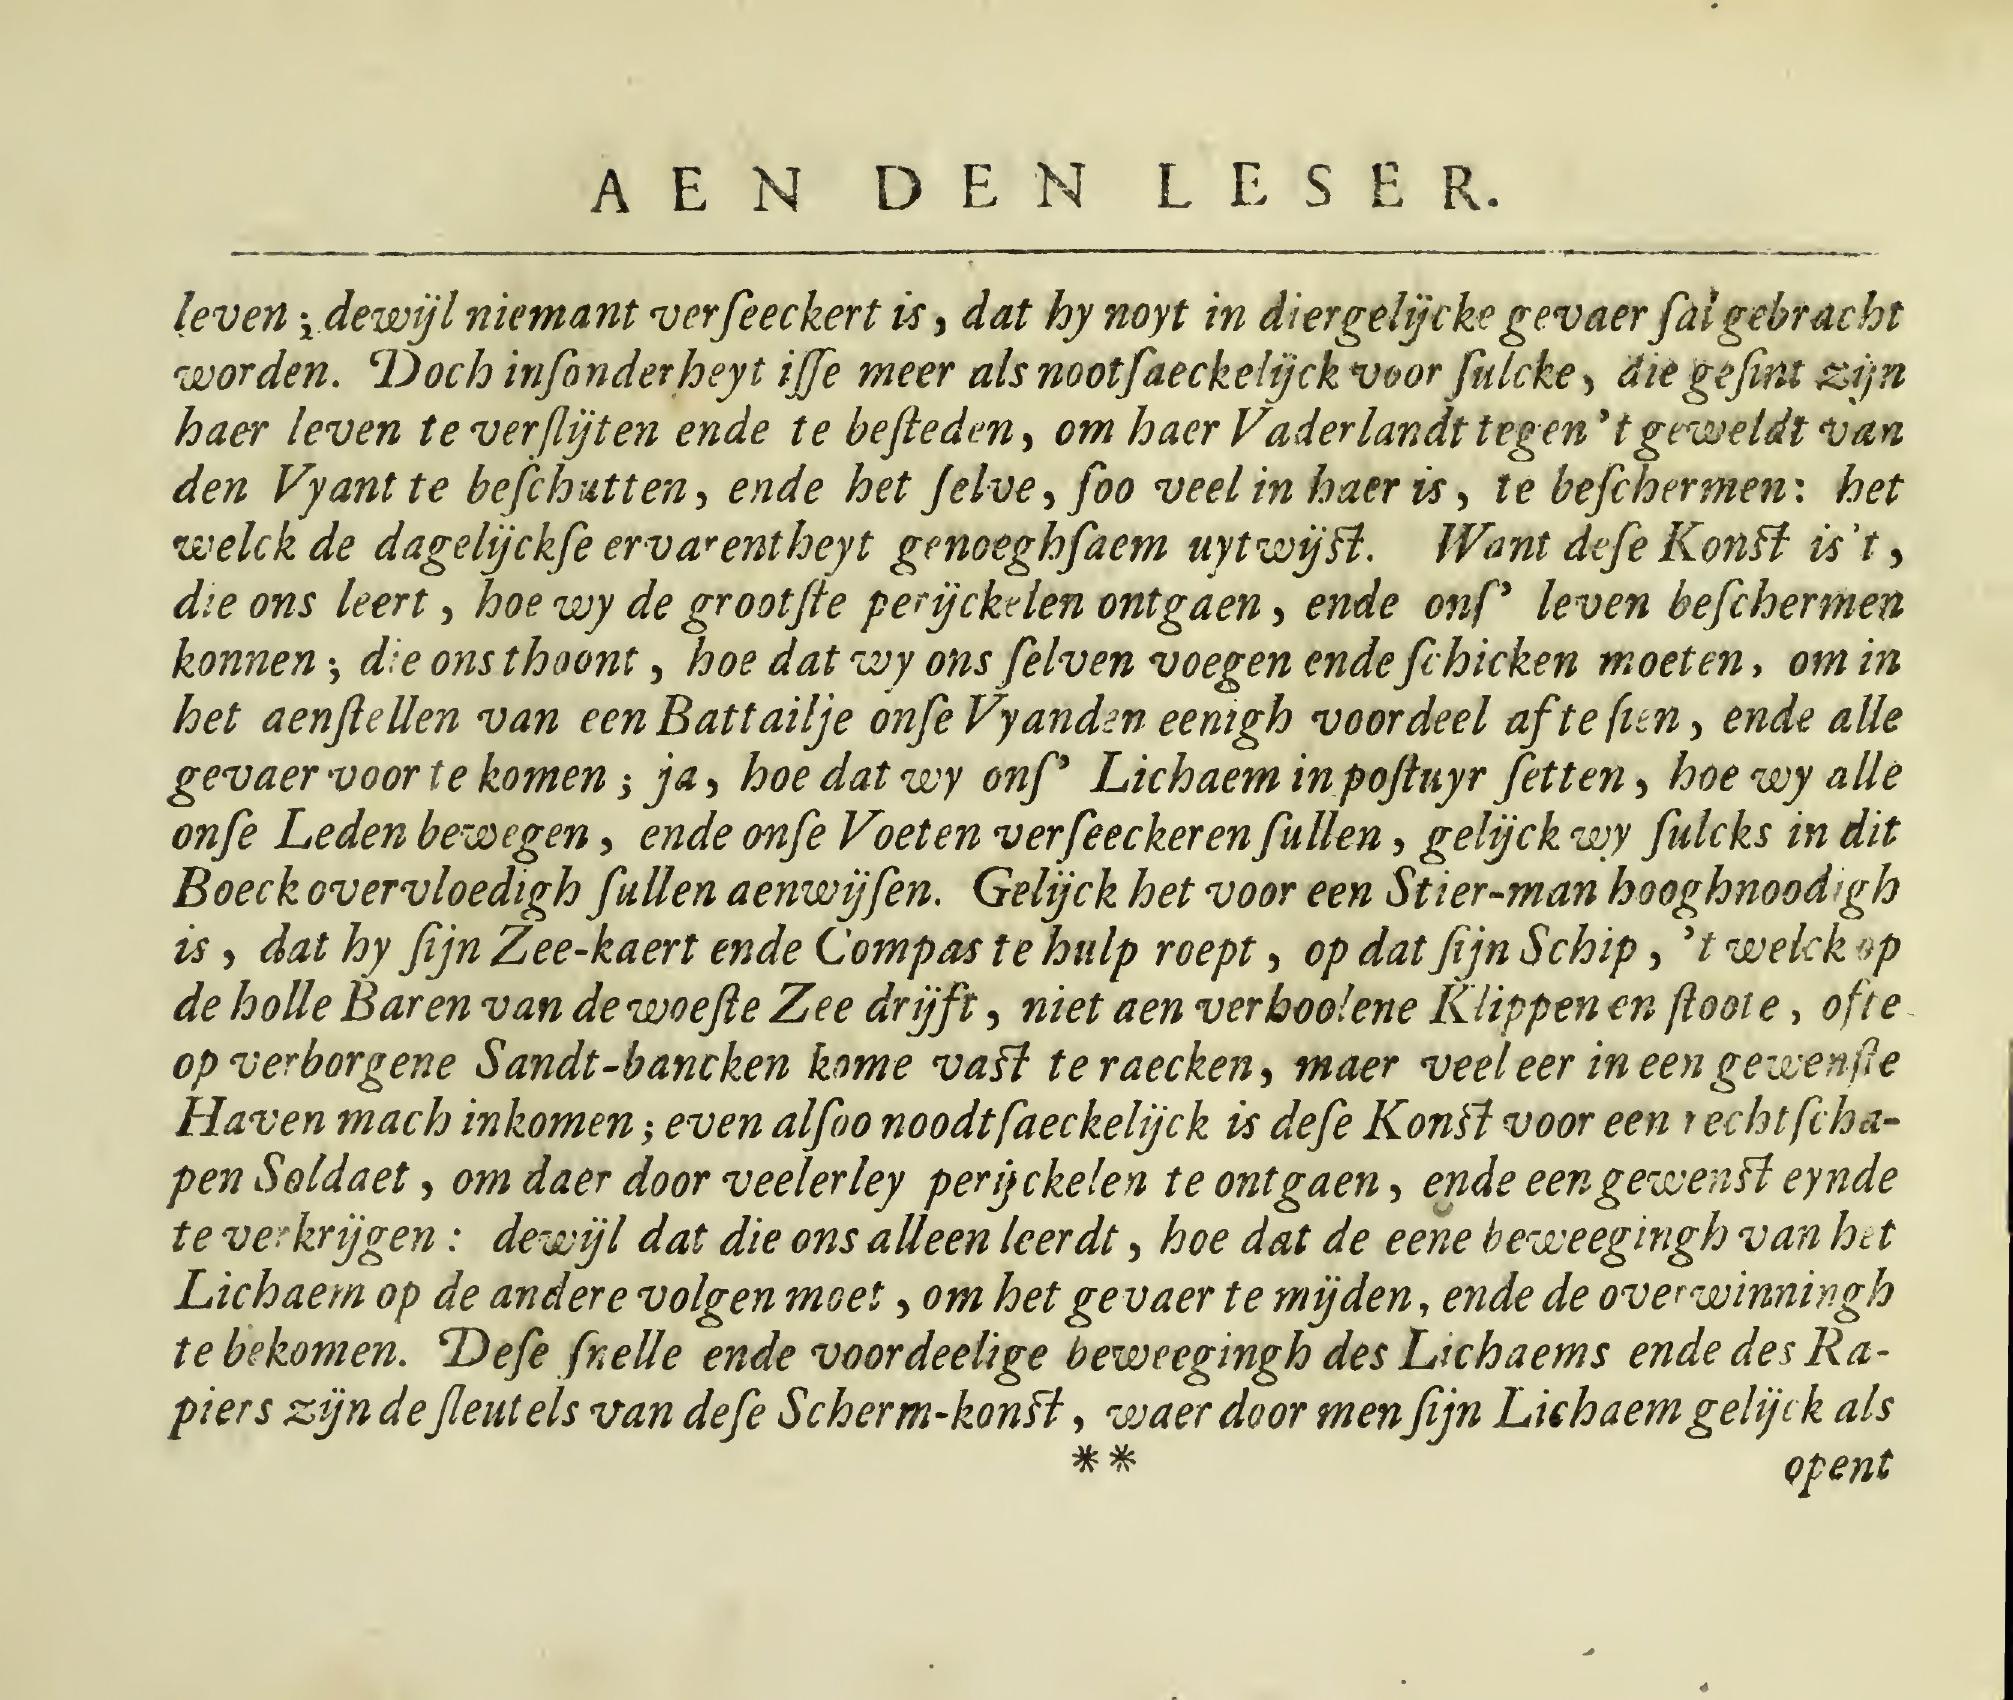 AEN DEN LESER.
leven; dewijl niemant verſeeckert is, dat hy noyt in diergelijcke gevaer ſal gebracht
worden. Doch inſonderheyt iſſe meer als nootſaeckelijck voor ſulcke, die geſint zijn
haer leven te verſlijten ende te beſteden, om haer Vaderlandt tegen 't geweldt van
den Vyant te beſchutten, ende het ſelve, ſoo veel in haer is, te beſchermen: het
welck de dagelijckſe ervarentheyt genoeghſaem uytwijſt. Want deſe Konſt is't,
die ons leert, hoe wy de grootſte perijckelen ontgaen, ende onſ' leven beſchermen
konnen; die ons thoont, hoe dat wy ons ſelven voegen ende ſchicken moeten, om in
het aenſtellen van een Battailje onſe Vyanden eenigh voordeel af te ſien, ende alle
gevaer voor te komen; ja, hoe dat wy onſ' Lichaem in poſtuyr ſetten, hoe wy alle
onſe Leden bewegen, ende onſe Voeten verſeeckeren ſullen, gelijck wy ſulcks in dit
Boeck overvloedigh ſullen aenwijſen. Gelijck het voor een Stier-man hooghnoodigh
is, dat hy ſijn Zee-kaert ende Compas te hulp roept, op dat ſijn Schip, 't welck op
de holle Baren van de woeſte Zee drijft, niet aen verhoolene Klippen en ſtoote, ofte
op verborgene Sandt-bancken kome vaſt te raecken, maer veel eer in een gewenſte
Haven mach inkomen; even alſoo noodtſaeckelijck is deſe Konſt voor een rechtſcha-
pen Soldaet, om daer door veelerley perijckelen te ontgaen, ende een gewenſt eynde
te verkrijgen: dewijl dat die ons alleen leerdt, hoe dat de eene beweegingh van het
Lichaem op de andere volgen moet, om het gevaer te mijden, ende de overwinningh
te bekomen. Deſe ſnelle ende voordeelige beweegingh des Lichaems ende des Ra-
piers zijn de ſleutels van deſe Scherm-konſt, waer door men ſijn Lichaem gelijck als
** opent